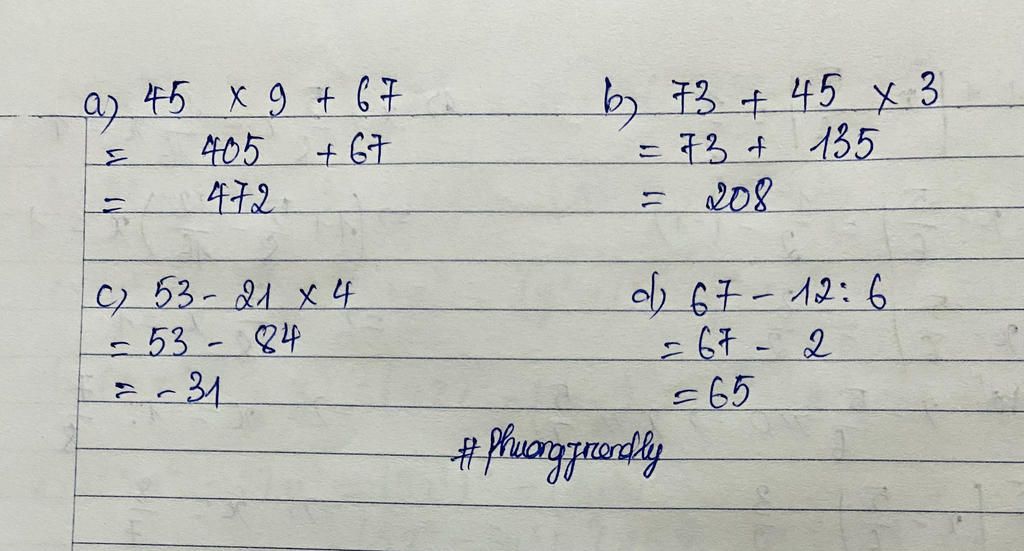 a) 45 × 9 + 67
= 405 + 67
= 472
b) 73 + 45 × 3
= 73 + 135
= 208
c) 53 - 21 × 4
= 53 - 84
= - 31
d) 67 - 12 : 6
= 67 - 2
= 65